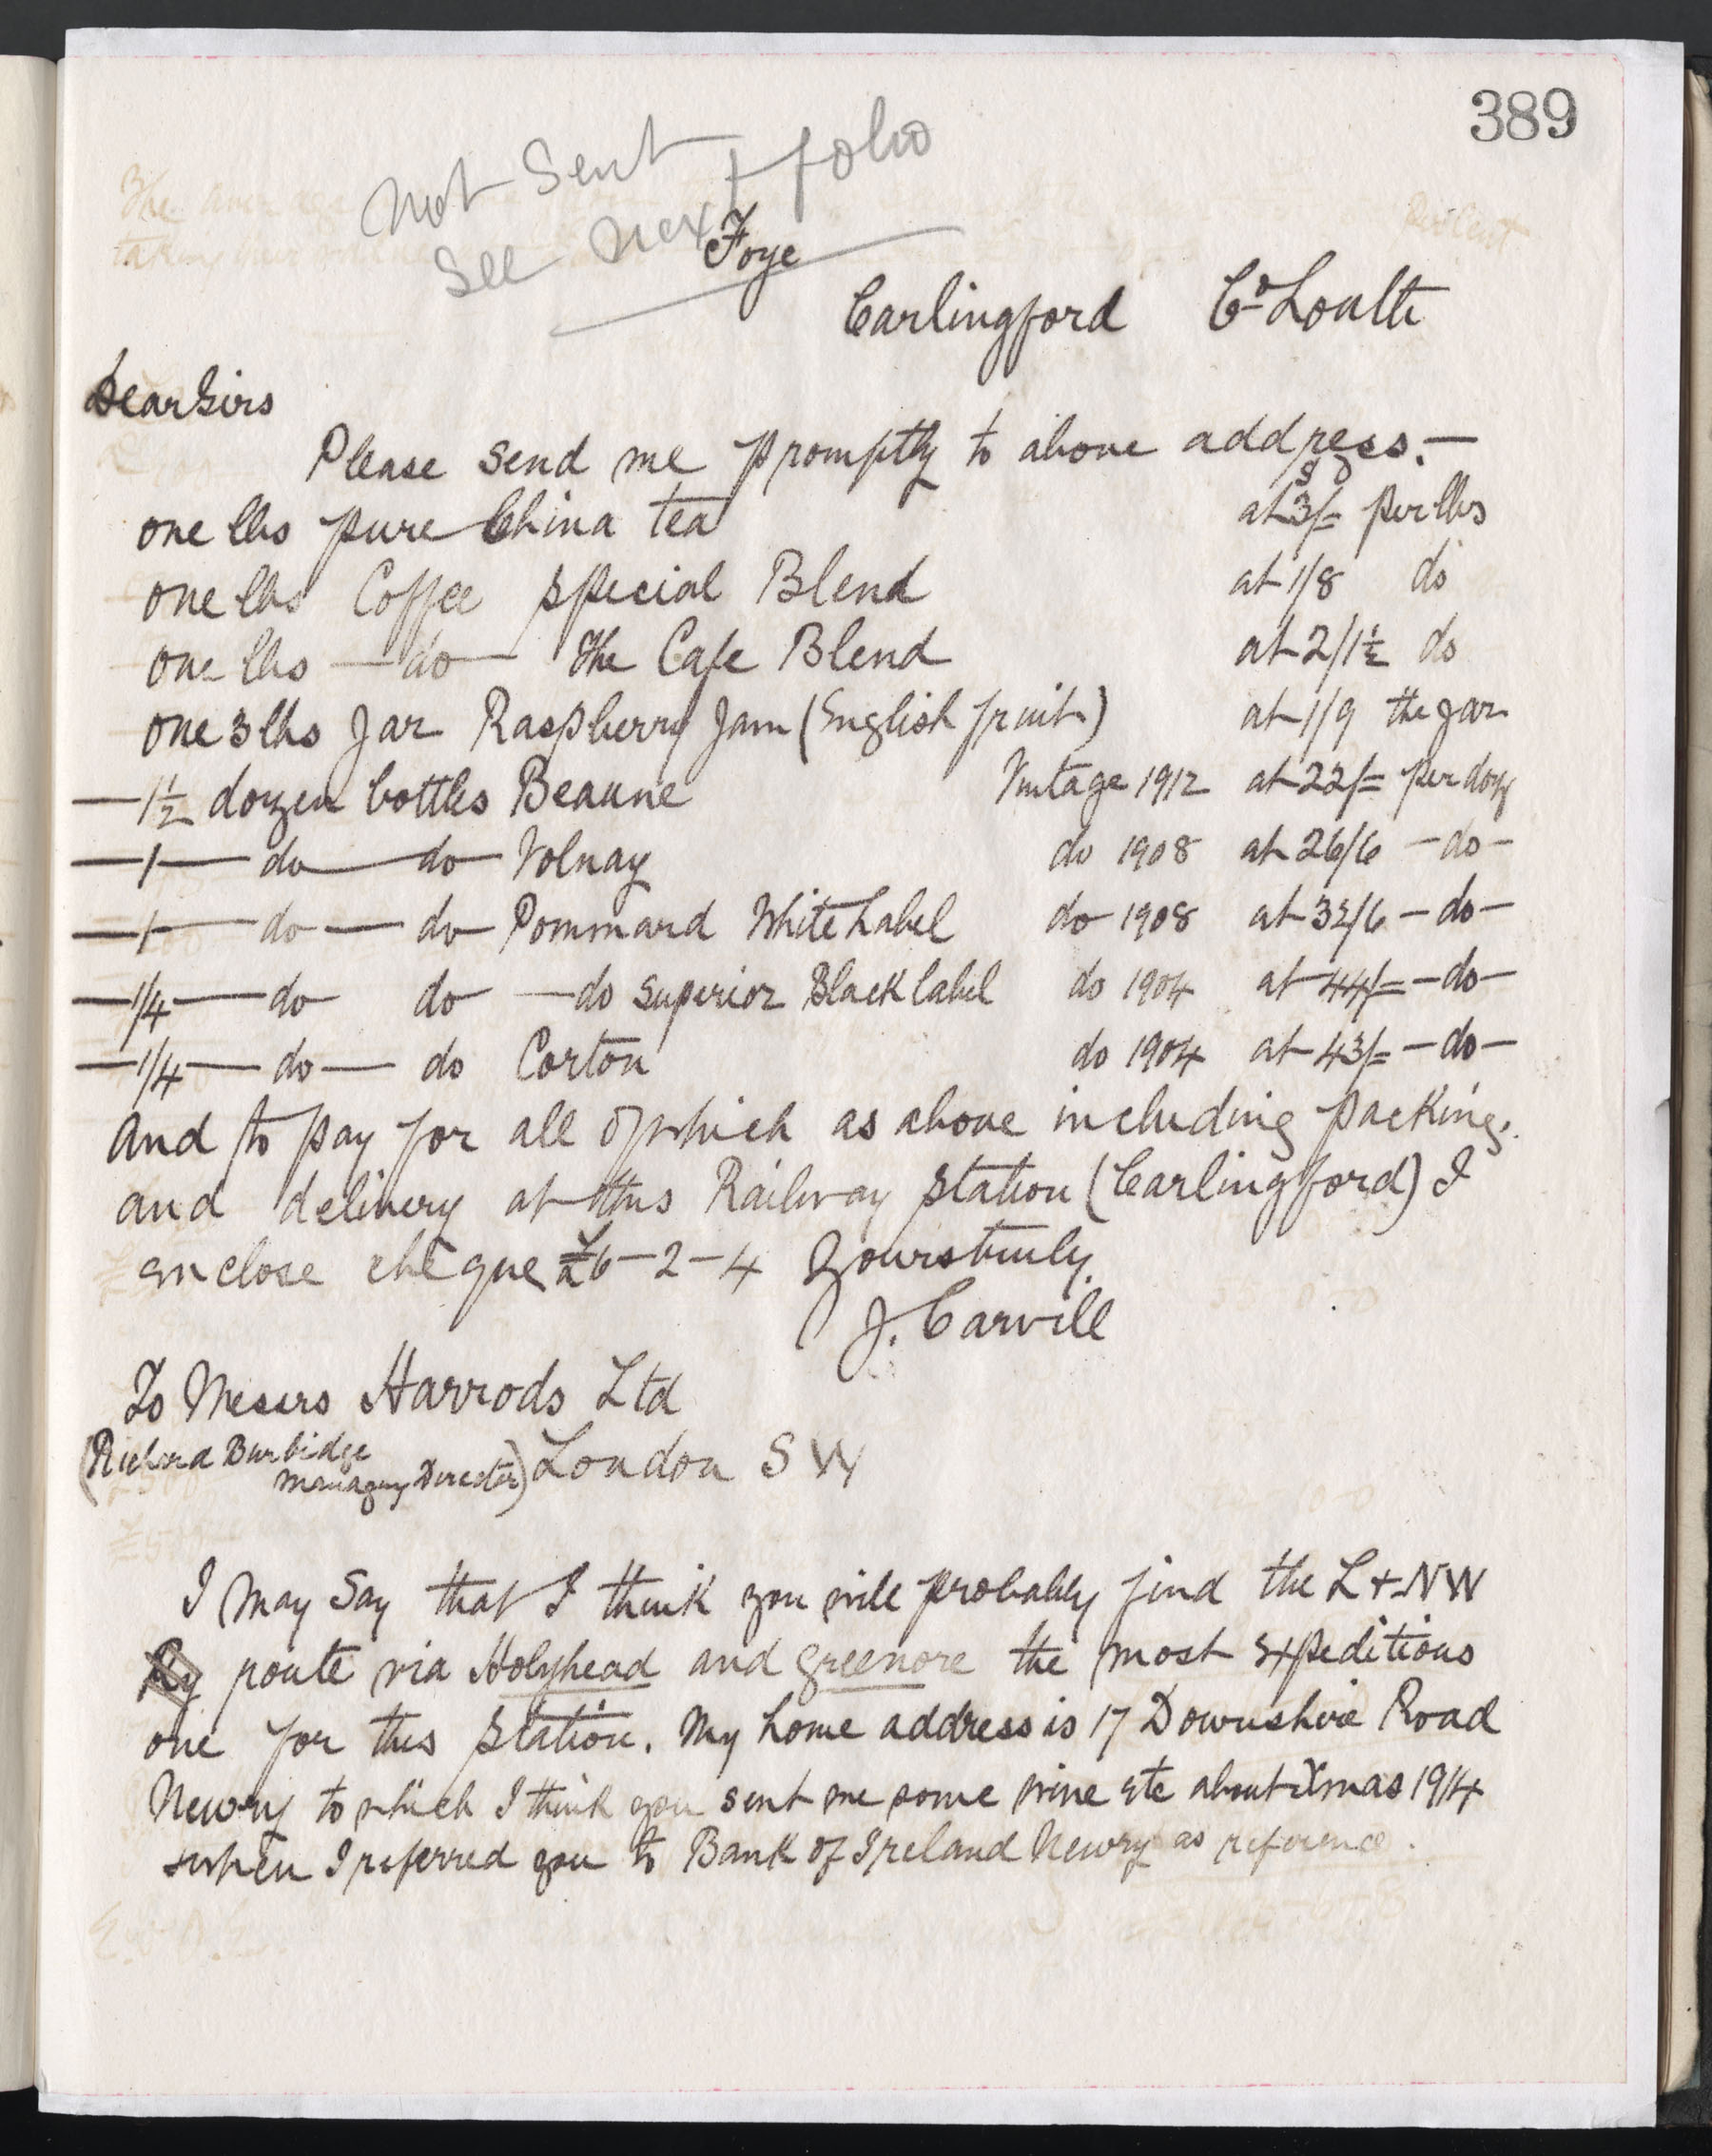 389
Not Sent
See Next folio
Foye
Carlingford Co Louth
Dear Sirs
Please send me promptly to above address:—
s d
one lbs pure China tea at 3/= per lbs
one lbs Coffee special Blend at 1/8 do
one lbs — do — The Cafe Blend at 2/1½ do
one 3 lbs Jar Raspberry Jam (English fruit) at 1/9 the Jar
— 1½ dozen bottles Beaune Vintage 1912 at 22/= per doz
— 1 — do — do — Volnay do 1908 at 26/6 — do —
— 1 — do — do — Pommard White Label do 1908 at 32/6 — do —
— 1/4 — do do — do Superior Black label do 1904 at 44/= — do —
— 1/4 — do — do Corton do 1904 at 43/= — do —
And to pay for all of which as above including packing.
and delivery at this Railway Station (Carlingford) I
enclose cheque £6-2-4 Yours truly.
J. Carvill
To Messrs Harrods Ltd
(Richard Burbidge
Managing Director) London S W
I may Say that I think you will probably find the L & N W
Ry route via Holyhead and Greenore the most expeditious
one for this Station. My home address is 17 Downshire Road
Newry to which I think you sent me some wine etc about Xmas 1914
when I referred you to Bank of Ireland Newry as reference.